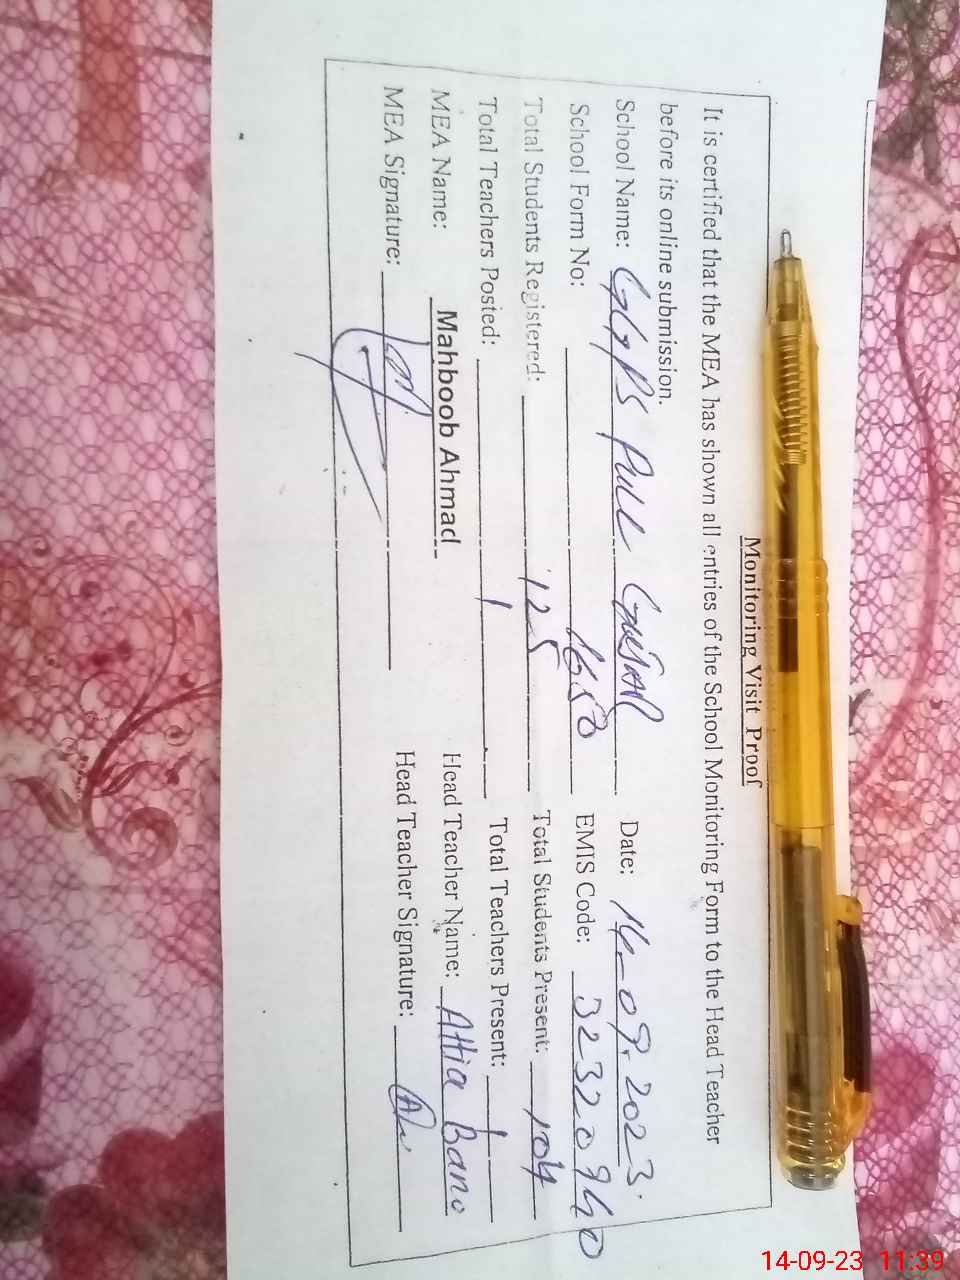 Monitoring Visit Proof
It is certified that the MEA has shown all entries of the School Monitoring Form to the Head Teacher
before its online submission.
School Name: GGPS Pull Date: 14-09-2023
School Form No: 1650 EMIS Code: 32320940
Total Students Registered: 125 Total Students Present: 104
Total Teachers Posted: 1 Total Teachers Present: 1
MEA Name: Mahboob Ahmad Head Teacher Name: Attia Bano
MEA Signature: Head Teacher Signature:
14-09-23 11:39